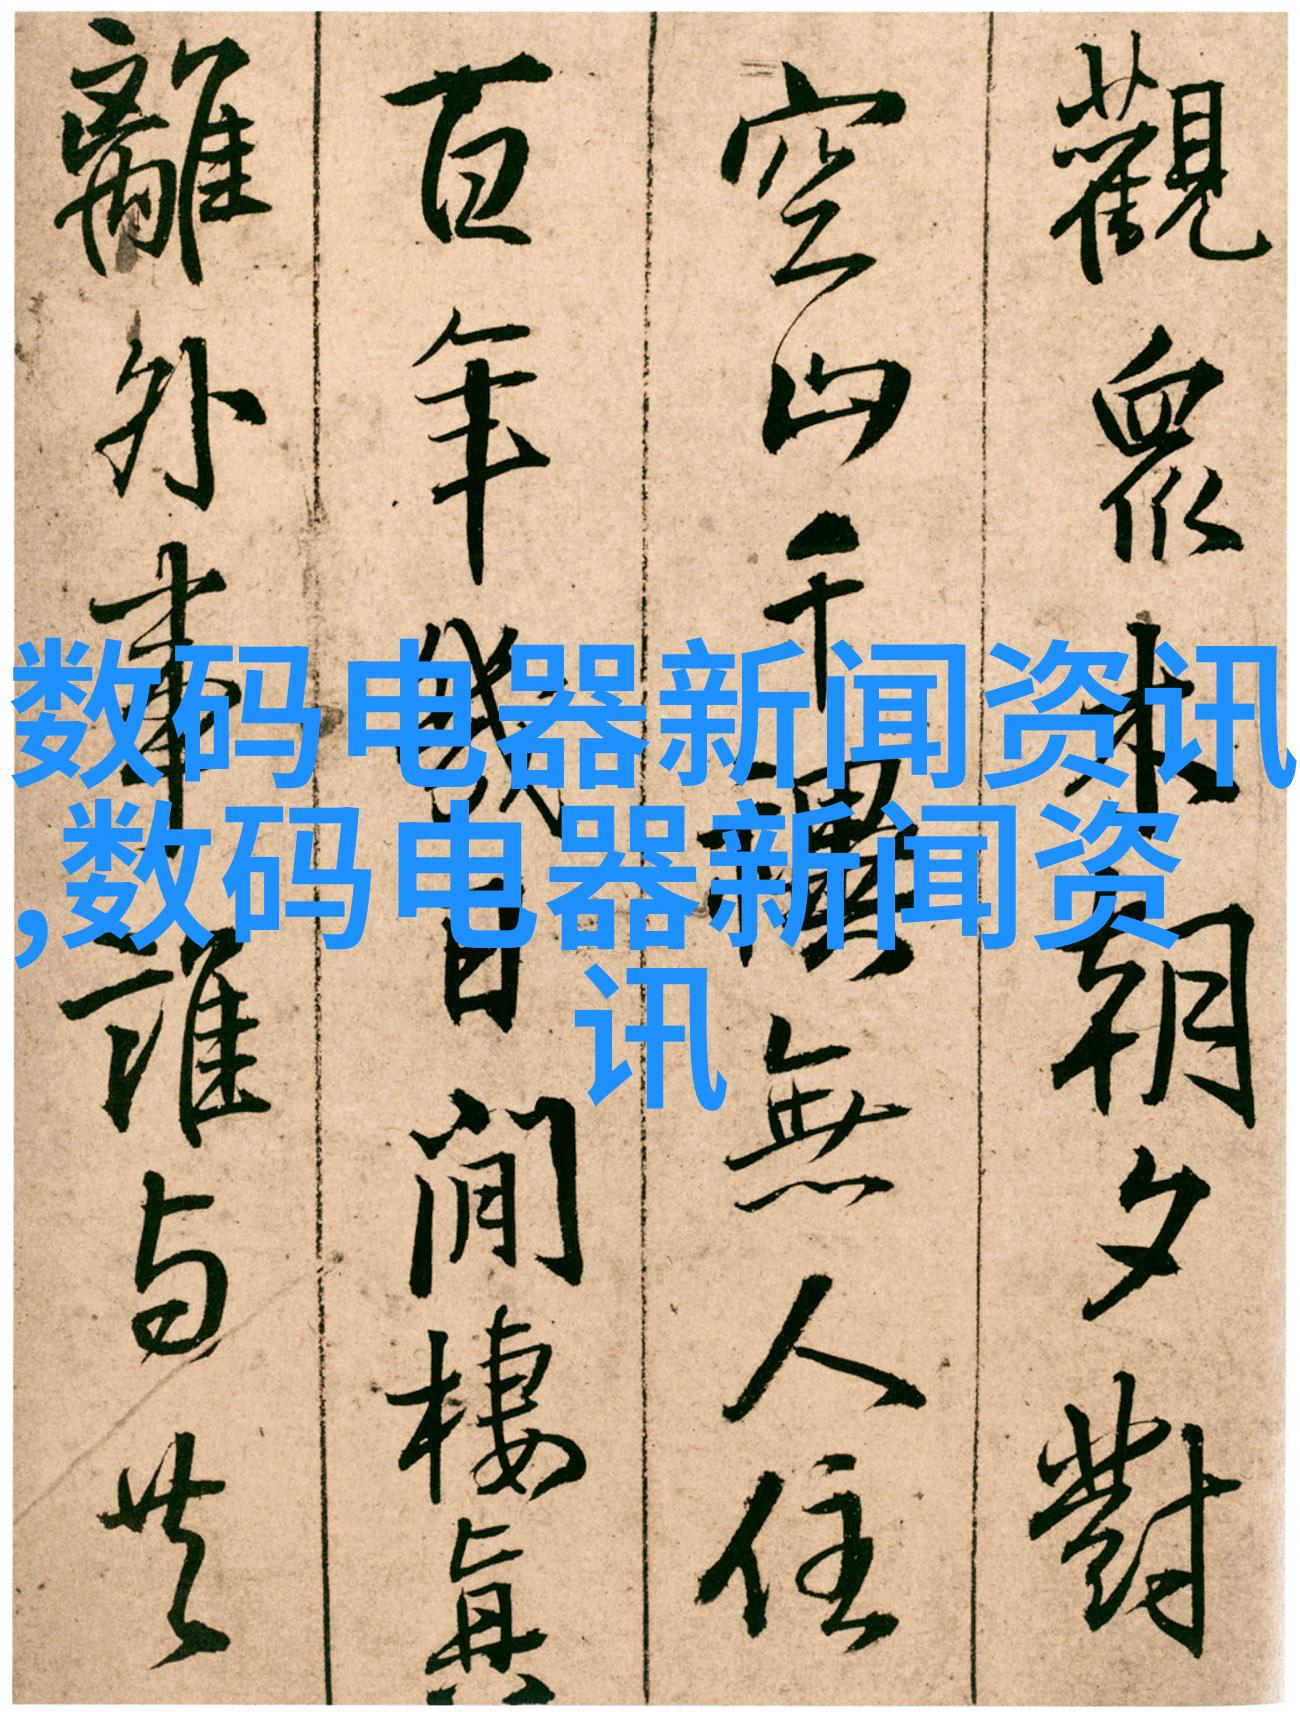 觀衆来朝夕對
空山千
無人住
百年
日閒棲真
離外事誰与共
数码电器新闻资讯
,数码电器新闻资
讯